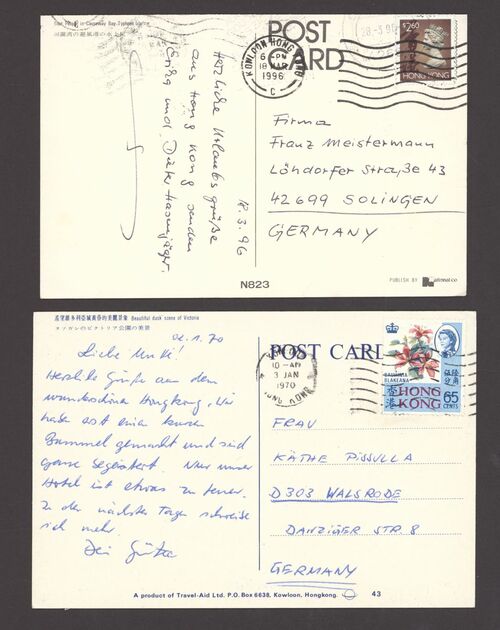 Boat People in Causeway Bay Typhoon Shelter
POST
CARD
KOWLOON HONG KONG
6-PM
18 MAR
1996
C
28-3-96
$2.60
HONG KONG
18.3.96
Herzliche Urlaubsgrüße
aus Hong Kong senden
Erika und Dieter
Firma
Franz Meistermann
Löhdorfer Straße 43
42699 SOLINGEN
GERMANY
N823
PUBLISH BY National Co
Beautiful dusk scene of Victoria
02.1.70
Liebe Mutti!
Herzliche Grüße aus dem
wunderschönen Hongkong. Wir
haben erst einen kurzen
Bummel gemacht und sind
ganz begeistert. Nur unser
Hotel ist etwas zu teuer.
In den nächsten Tagen schreibe
ich mehr.
Dein Günter
POST CARD
10-AM
3 JAN
1970
HONG KONG
BAUHINIA
BLAKEANA
香港
HONG
KONG
伍陸分角
65
CENTS
FRAU
KÄTHE PISSULLA
D303 WALSRODE
DANZIGER STR. 8
GERMANY
A product of Travel-Aid Ltd. P.O. Box 6638, Kowloon, Hongkong.
43